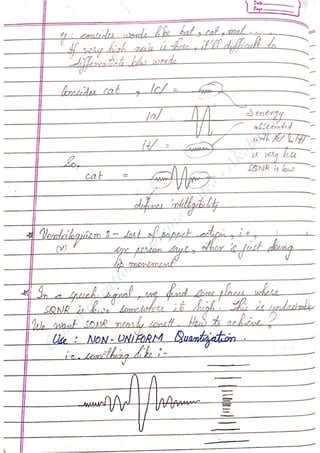 eg: consider words like bat, cat, mat ....
If very high noise is there, it'll difficult to
differentiate b/w words
Consider cat, /c/ =
/a/
/t/ =
→ energy
associated
with /c/ & /t/
is very less
SQNR is low
So,
cat =
defines intelligibility
* Ventriloquism :- sort of puppet, i.e.,
(v)
one person says, other is just doing
lip movement
* In a speech signal, we find some places where
SQNR is low, somewhere it high. This is undesirable
We want SQNR nearly const. How to achieve?
Use : NON-UNIFORM Quantization.
i.e. something like :-